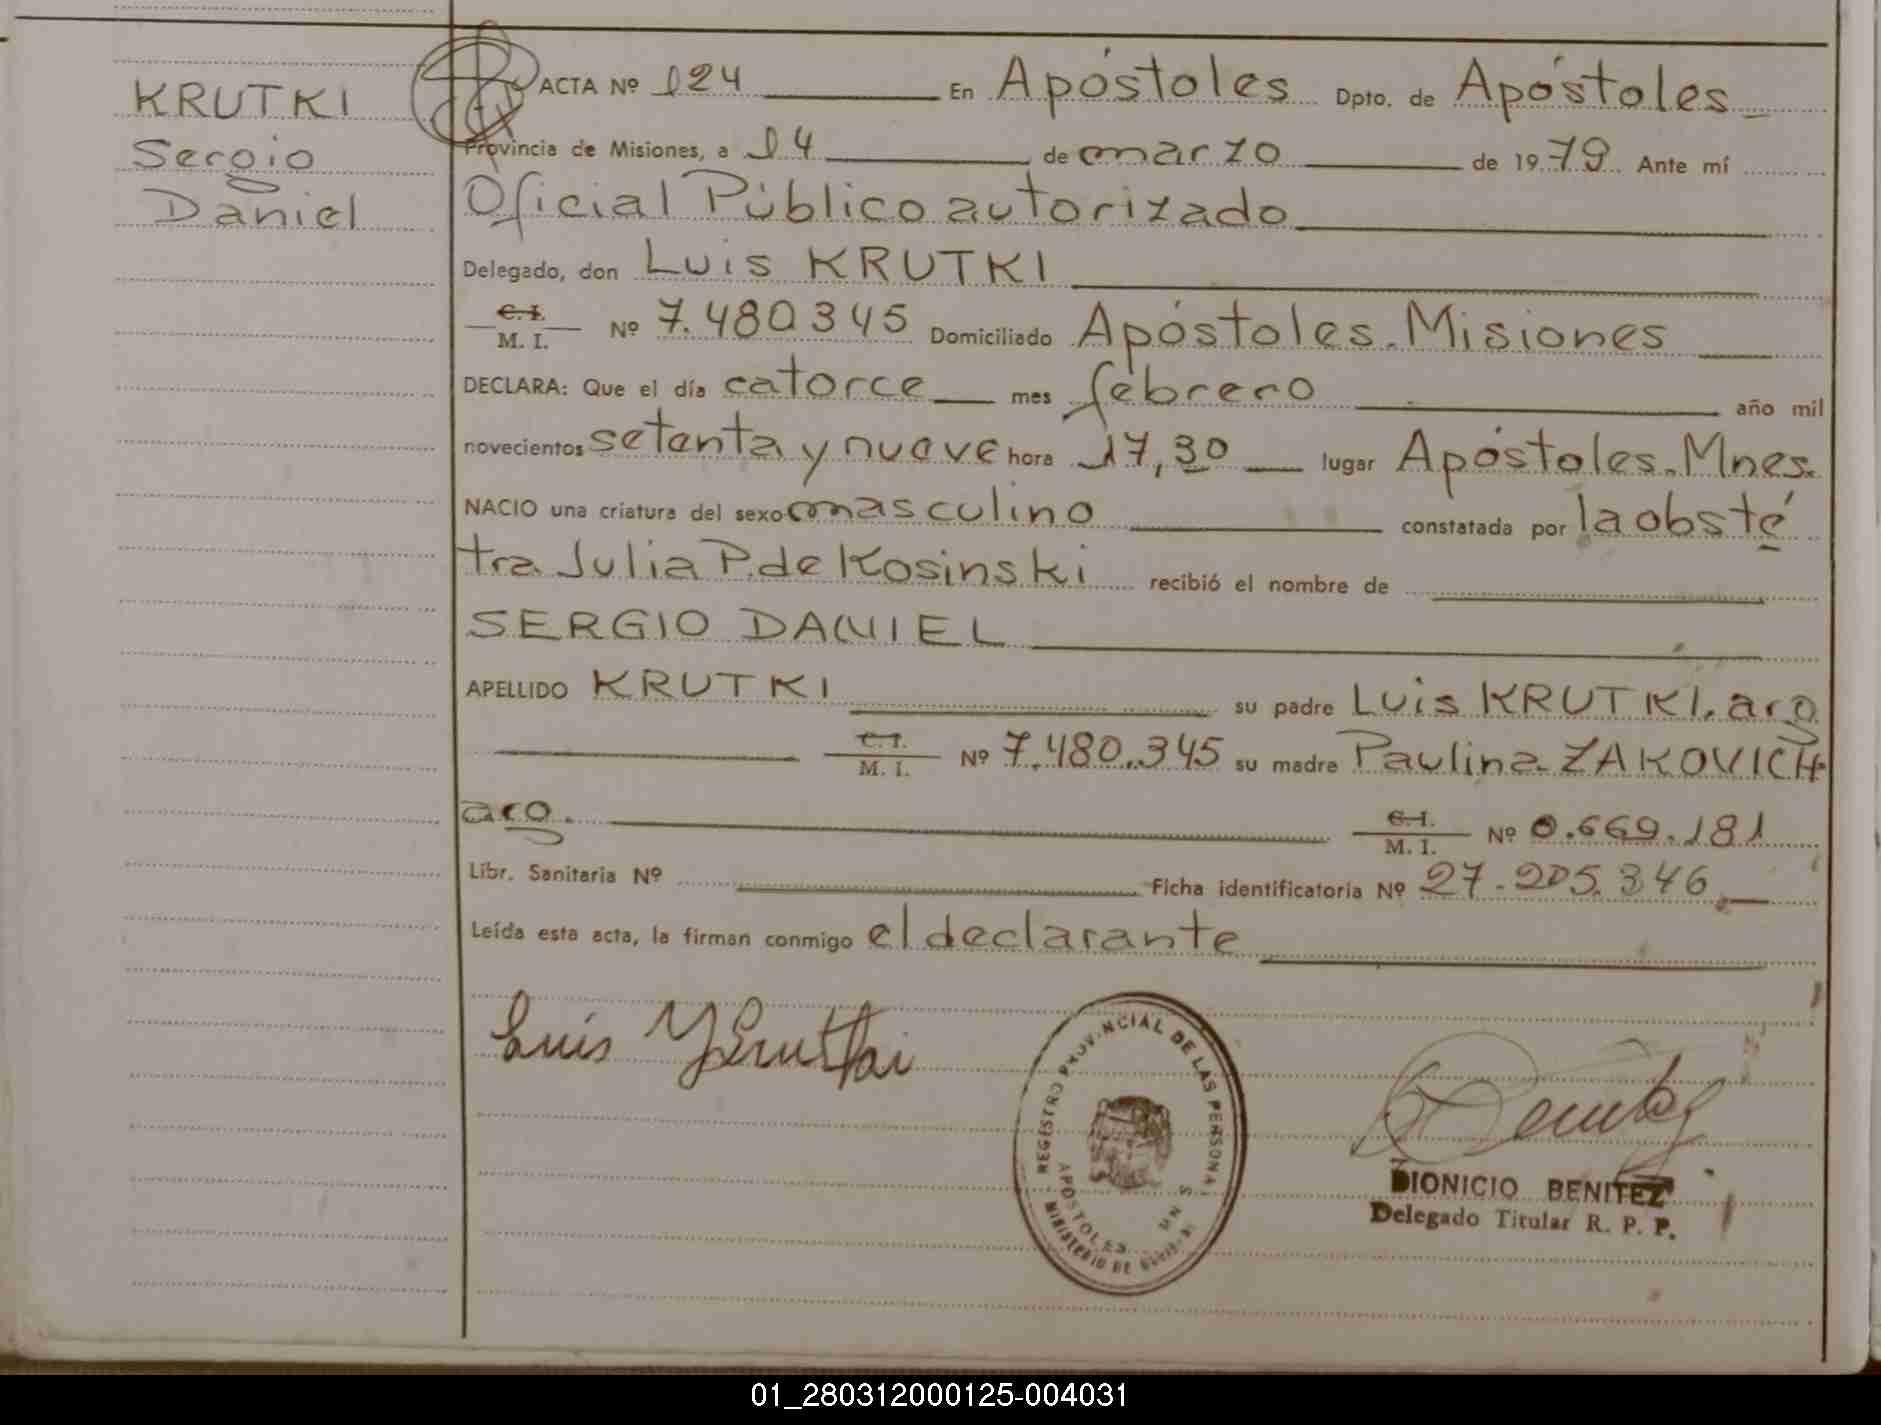 KRUTKI
Sergio
Daniel
ACTA Nº 124 En Apóstoles Dpto. de Apóstoles
Provincia de Misiones, a 14 de marzo de 1979 Ante mí
Oficial Público autorizado
Delegado, don Luis KRUTKI
C. I.
M. I. Nº 7.480345 Domiciliado Apóstoles. Misiones
DECLARA: Que el día catorce mes febrero año mil
novecientos setenta y nueve hora 17,30 lugar Apóstoles. Mnes.
NACIO una criatura del sexo masculino constatada por la obsté
tra Julia P. de Kosinski recibió el nombre de
SERGIO DANIEL
APELLIDO KRUTKI su padre Luis KRUTKI. arg
C. I.
M. I. Nº 7.480.345 su madre Paulina ZAKOVICH
arg. C. I.
M. I. Nº 0.669.181
Libr. Sanitaria Nº Ficha identificatoria Nº 27.205.346
Leída esta acta, la firman conmigo el declarante
Luis Krutki
REGISTRO PROVINCIAL DE LAS PERSONAS
APOSTOLES MNES
MINISTERIO DE
DIONICIO BENITEZ
Delegado Titular R. P. P.
01_280312000125-004031